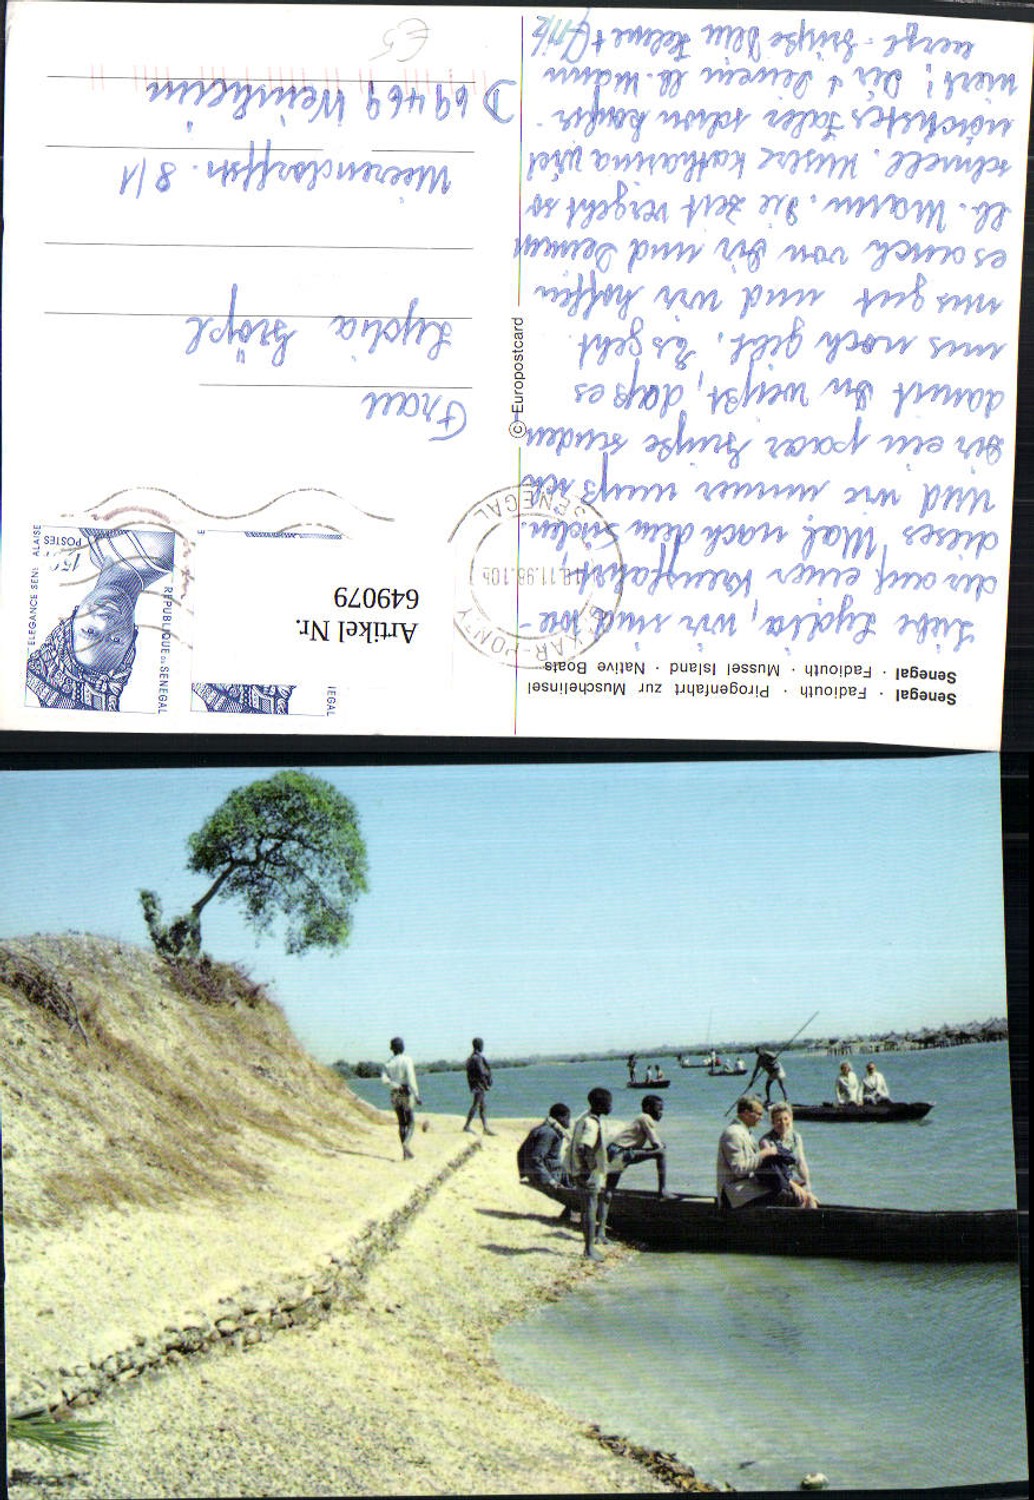 Senegal · Fadiouth · Pirogenfahrt zur Muschelinsel
Senegal · Fadiouth · Mussel Island · Native Boats
Liebe Lydia, wir sind wie-
der auf einer Kreuzfahrt,
dieses Mal nach dem Süden.
Und wie immer muß ich
Dir ein paar Grüße senden
damit Du weißt, daß es
uns noch gibt. Es geht
uns gut und wir hoffen
es auch von Dir und Deinem
lb. Mann. Die Zeit vergeht so
schnell. Unsere Katharina wird
nächstes Jahr schon
Dir & Deinem lb. Mann
Grüße Dein Helmut
© Europostcard
DAKAR-PONTY
18.11.96.10h
SENEGAL
Artikel Nr.
649079
REPUBLIQUE DU SENEGAL
ELEGANCE SENEGALAISE
POSTES
EGAL
E
Frau
Lydia
8/1
D 69469 Weinheim
€5